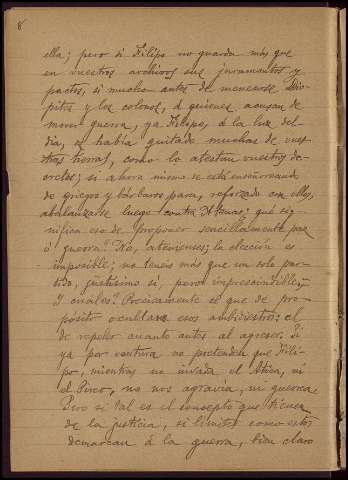 8
ella; pero si Filipo no guarda más que
en vuestros archivos sus juramentos y
pactos, si mucho antes de menearse Dio-
pites y los colonos, á quienes acusan de
mover guerra, ya Filipo, á la luz del
día, os había quitado muchas de vues-
tras tierras, como lo atestan vuestros de-
cretos; si ahora mismo se está enseñoreando
de griegos y bárbaros para, reforzado con ellos,
abalanzarse luego contra Atenas; qué sig-
nifica eso de proponer sencillamente paz
ó guerra? No, atenienses; la elección es
imposible; no tenéis más que un solo par-
tido, justísimo sí, pero imprescindible.
Y cuáles? Precisamente el que de pro-
pósito ocultan esos embusteros: el
de repeler cuanto antes al agresor. Si
ya por ventura no pretenden que Fili-
po, mientras no invada el Ática, ni
el Pireo, no nos agravia, ni guerrea.
Pero si tal es el concepto que tienen
de la justicia, si límites como estos
demarcan á la guerra, bien claro